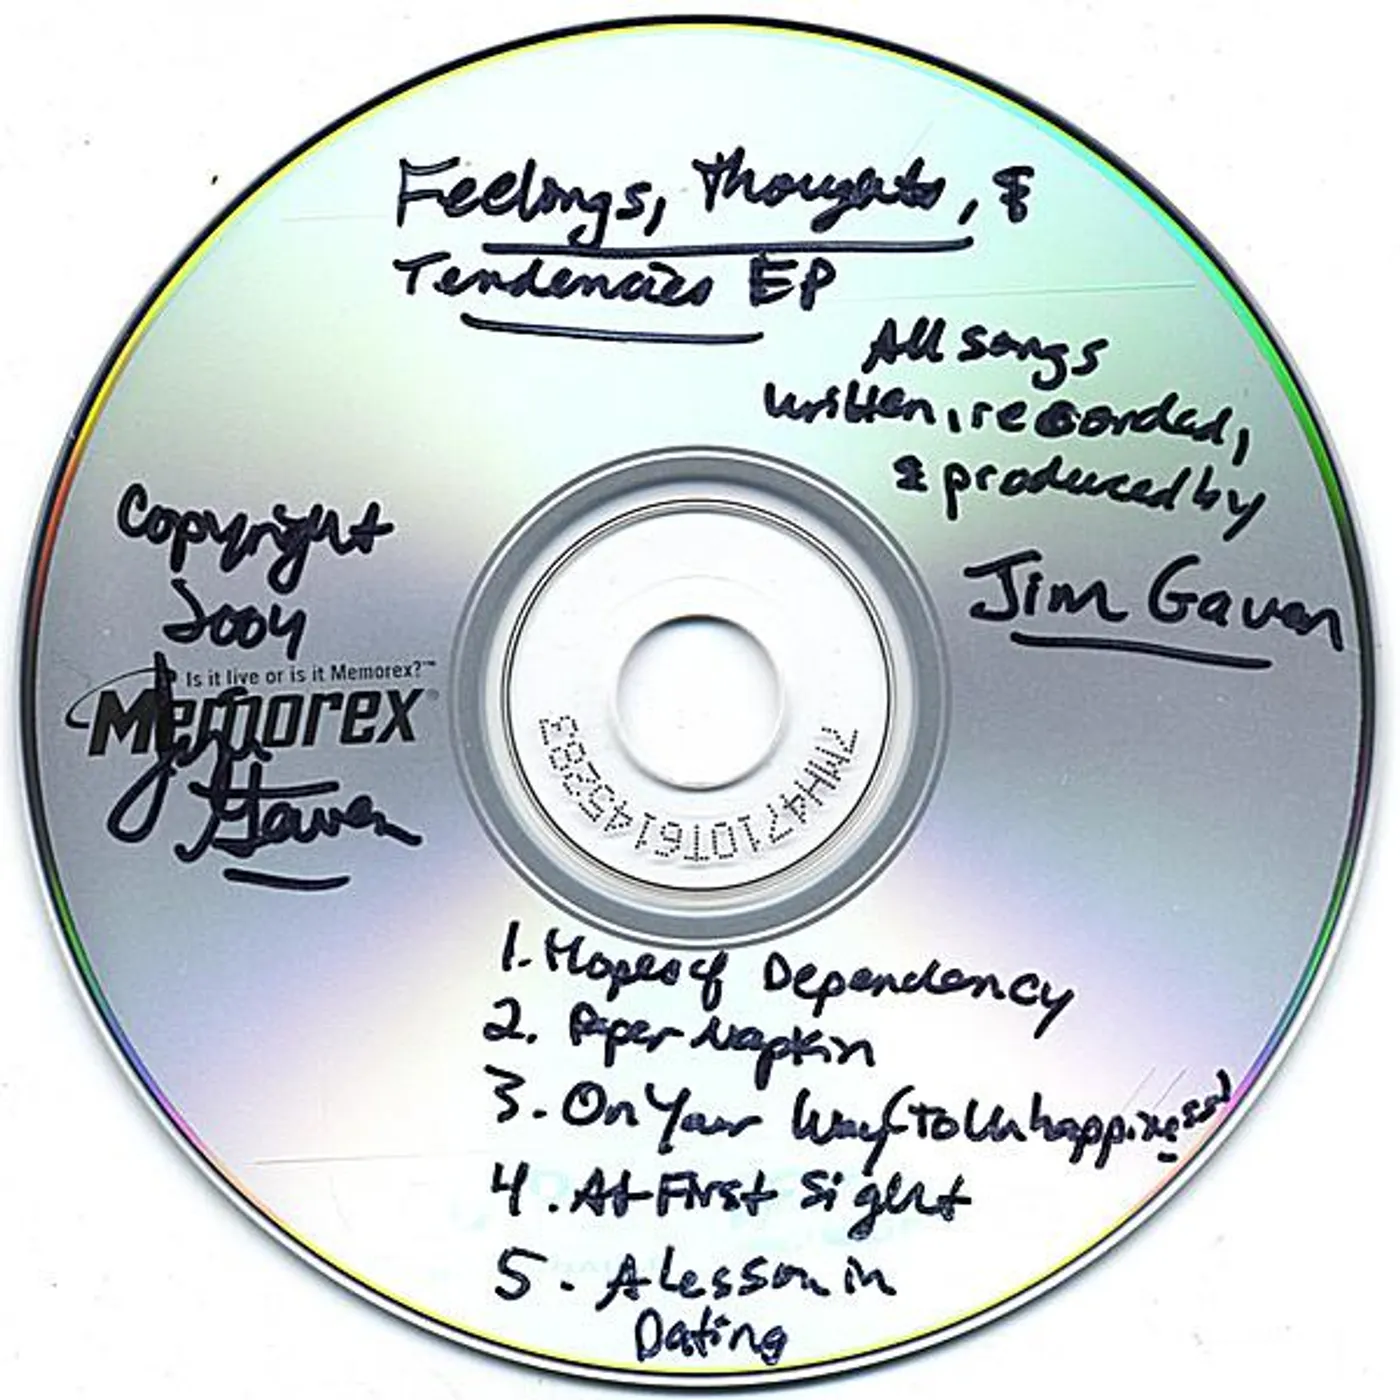 Feelings, Thoughts, &
Tendencies EP
All songs
written, recorded,
& produced by
Jim Gaven
Copyright
2004
Is it live or is it Memorex?™
Memorex®
Jim
Gaven
7MH4710T6145283
1. Hopes of Dependency
2. Paper Napkin
3. On Your Way (To Unhappiness)
4. At First Sight
5. A Lesson in
Dating